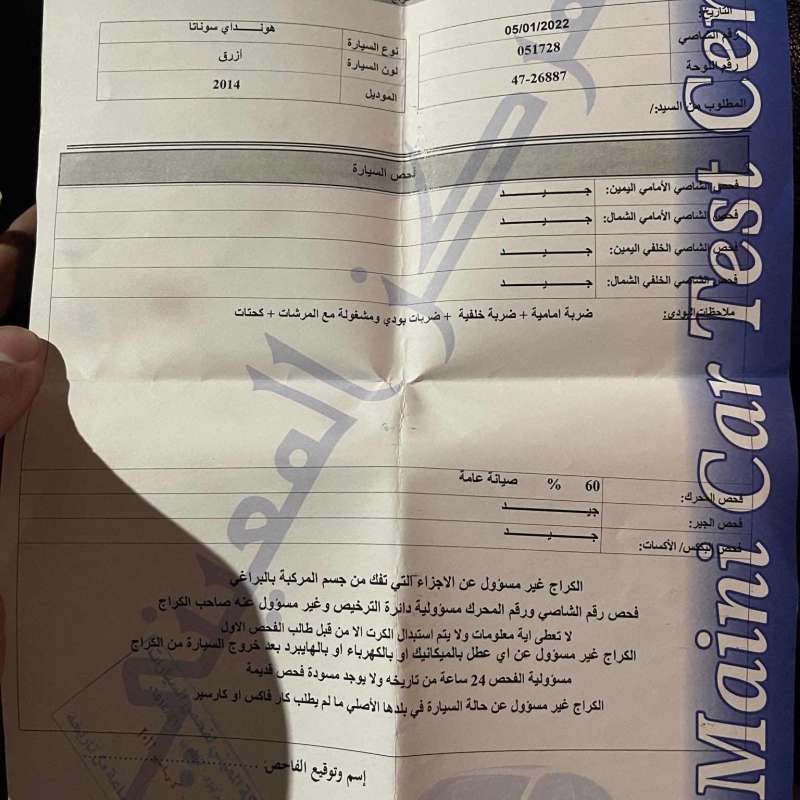 التاريخ: 05/01/2022
رقم الشاصي 051728
رقم اللوحة 47-26887
نوع السيارة هونـــــداي سوناتا
لون السيارة أزرق
الموديل 2014
المطلوب من السيد:/
فحص السيارة
فحص الشاصي الأمامي اليمين: جـــــــيـــــــد
فحص الشاصي الأمامي الشمال: جـــــــيـــــــد
فحص الشاصي الخلفي اليمين: جـــــــيـــــــد
فحص الشاصي الخلفي الشمال: جـــــــيـــــــد
ملاحظات البودي: ضربة امامية + ضربة خلفية + ضربات بودي ومشغولة مع المرشات + كحتات
فحص المحرك: 60 % صيانة عامة
فحص الجير: جيـــــــــد
فحص البكس/ الأكسات: جـــــــيـــــــد
الكراج غير مسؤول عن الاجزاء التي تفك من جسم المركبة بالبراغي
فحص رقم الشاصي ورقم المحرك مسؤولية دائرة الترخيص وغير مسؤول عنه صاحب الكراج
لا تعطى اية معلومات ولا يتم استبدال الكرت الا من قبل طالب الفحص الاول
الكراج غير مسؤول عن اي عطل بالميكانيك او بالكهرباء او بالهايبرد بعد خروج السيارة من الكراج
مسؤولية الفحص 24 ساعة من تاريخه ولا يوجد مسودة فحص قديمة
الكراج غير مسؤول عن حالة السيارة في بلدها الأصلي ما لم يطلب كار فاكس او كارسير
إسم وتوقيع الفاحص:
Maini Car Test Cen
مركز المعيني